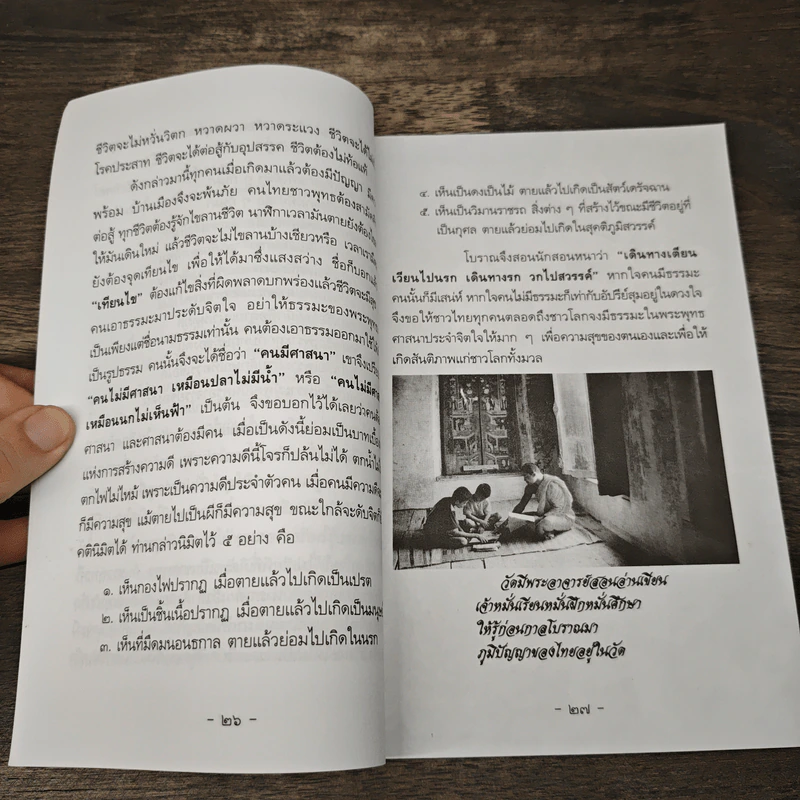 ชีวิตจะไม่หวั่นวิตก หวาดผวา หวาดระแวง ชีวิตจะได้ไม่
โรคประสาท ชีวิตจะได้ต่อสู้กับอุปสรรค ชีวิตต้องไม่ท้อแท้
ดังกล่าวมานี้ทุกคนเมื่อเกิดมาแล้วต้องมีปัญญา
พร้อม บ้านเมืองจึงจะพ้นภัย คนไทยชาวพุทธต้องสามัคคี
ต่อสู้ ทุกชีวิตต้องรู้จักไขลานชีวิต นาฬิกาเวลามันตายยังต้อง
ให้มันเดินใหม่ แล้วชีวิตจะไม่ไขลานบ้างเชียวหรือ เวลา
ยังต้องจุดเทียนไข เพื่อให้ได้มาซึ่งแสงสว่าง ชื่อก็บอก
"เทียนไข" ต้องแก้ไขสิ่งที่ผิดพลาดบกพร่องแล้วชีวิตจะ
คนเอาธรรมะมาประดับจิตใจ อย่าให้ธรรมะของพระพุทธ
เป็นเพียงแต่ชื่อนามธรรมเท่านั้น คนต้องเอาธรรมออกมาใช้
เป็นรูปธรรม คนนั้นจึงจะได้ชื่อว่า "คนมีศาสนา" เขาจึง
"คนไม่มีศาสนา เหมือนปลาไม่มีน้ำ" หรือ "คนไม่มี
เหมือนนกไม่เห็นฟ้า" เป็นต้น จึงขอบอกไว้ได้เลยว่าคน
ศาสนา และศาสนาต้องมีคน เมื่อเป็นดังนี้ย่อมเป็นบาท
แห่งการสร้างความดี เพราะความดีนี้โจรก็ปล้นไม่ได้ ตกน้ำ
ตกไฟไม่ไหม้ เพราะเป็นความดีประจำตัวคน เมื่อคนมีความดี
ก็มีความสุข แม้ตายไปเป็นผีก็มีความสุข ขณะใกล้จะดับจิต
คตินิมิตได้ ท่านกล่าวนิมิตไว้ ๕ อย่าง คือ
๑. เห็นกองไฟปรากฏ เมื่อตายแล้วไปเกิดเป็นเปรต
๒. เห็นเป็นชิ้นเนื้อปรากฏ เมื่อตายแล้วไปเกิดเป็นมนุษย์
๓. เห็นที่มืดมนอนธกาล ตายแล้วย่อมไปเกิดในนรก
- ๒๖ -
๔. เห็นเป็นดงเป็นไม้ ตายแล้วไปเกิดเป็นสัตว์เดรัจฉาน
๕. เห็นเป็นวิมานราชรถ สิ่งต่าง ๆ ที่สร้างไว้ขณะมีชีวิตอยู่ที่
เป็นกุศล ตายแล้วย่อมไปเกิดในสุคติภูมิสวรรค์
โบราณจึงสอนนักสอนหนาว่า "เดินทางเตียน
เวียนไปนรก เดินทางรก วกไปสวรรค์" หากใจคนมีธรรมะ
คนนั้นก็มีเสน่ห์ หากใจคนไม่มีธรรมะก็เท่ากับอัปรีย์สุมอยู่ในดวงใจ
จึงขอให้ชาวไทยทุกคนตลอดถึงชาวโลกจงมีธรรมะในพระพุทธ
ศาสนาประจำจิตใจให้มาก ๆ เพื่อความสุขของตนเองและเพื่อให้
เกิดสันติภาพแก่ชาวโลกทั้งมวล
วัดมีพระอาจารย์สอนอ่านเขียน
เจ้าหมั่นเรียนหมั่นฝึกหมั่นศึกษา
ให้รู้ก่อนกาลโบราณมา
ภูมิปัญญาของไทยอยู่ในวัด
- ๒๗ -